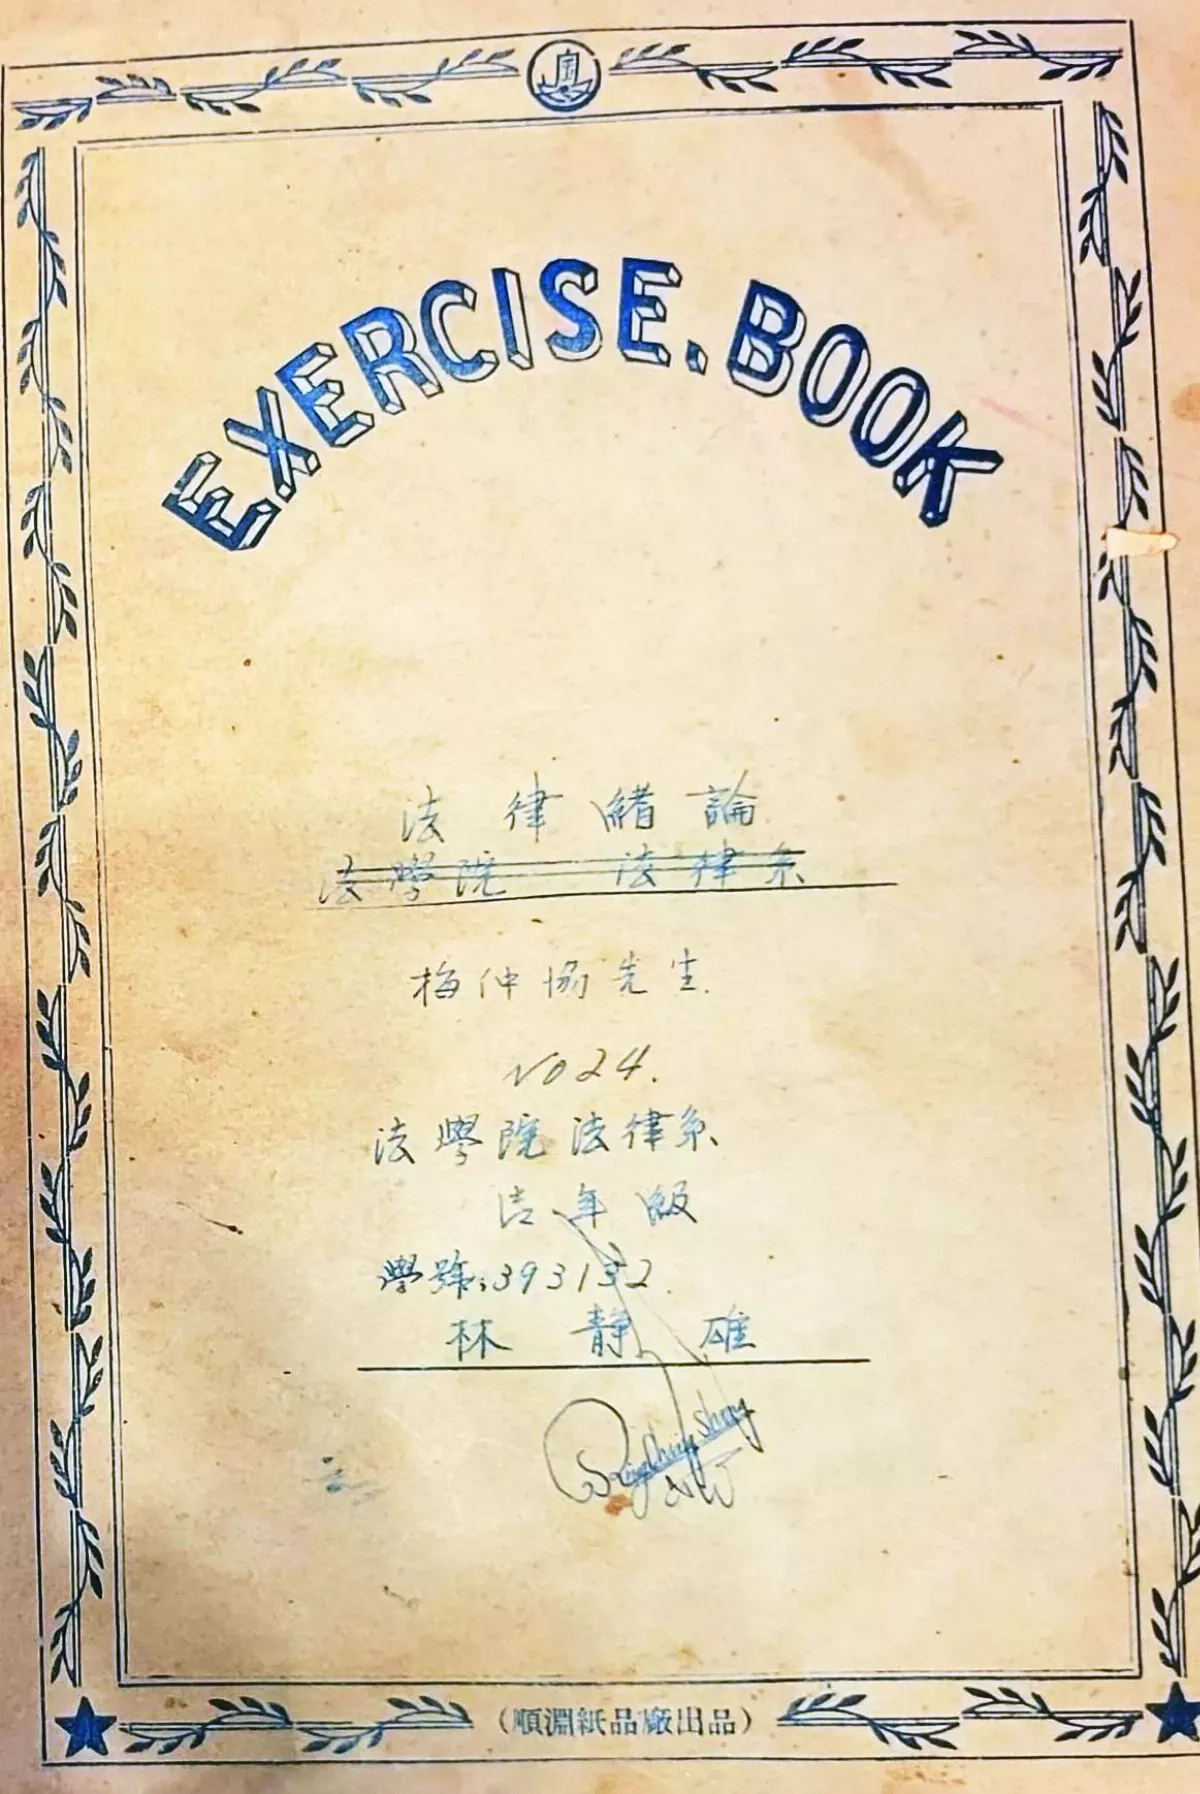 EXERCISE.BOOK
法律緒論.
法學院 法律系
梅仲協先生.
NO24.
法學院法律系
年級
學號:393132.
林靜雄
(順淵紙品廠出品)